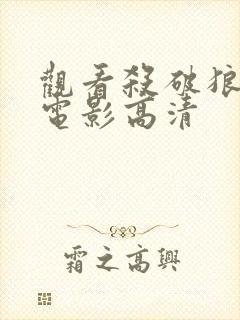 觀看殺破狼
電影高清
霜之高興